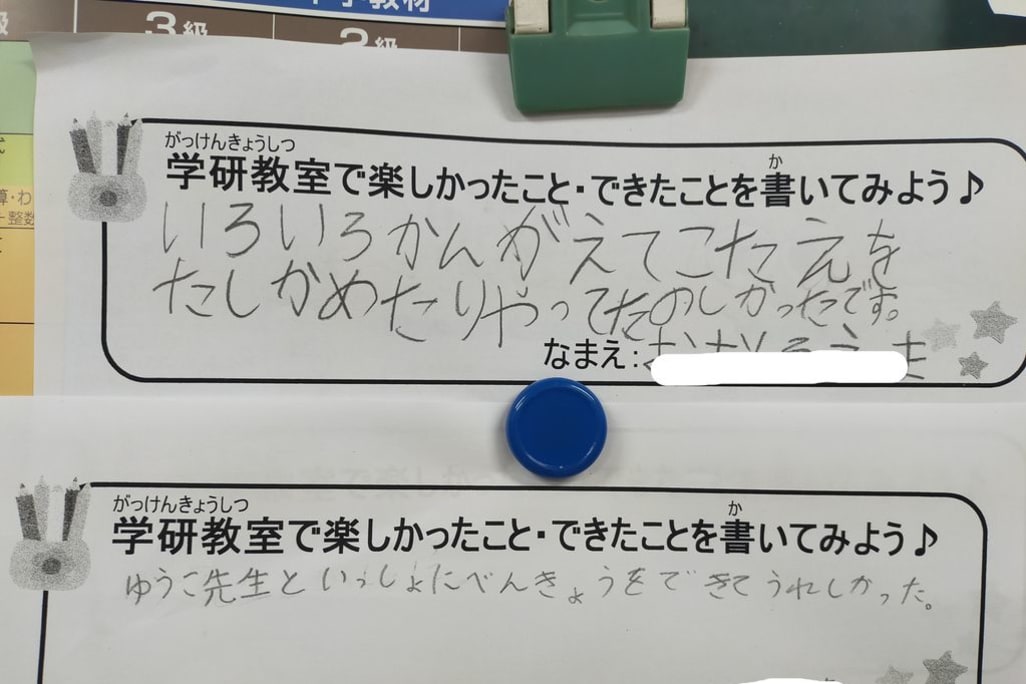 3級
がっけんきょうしつ
学研教室で楽しかったこと・できたことを書いてみよう♪
か
いろいろかんがえてこたえを
たしかめたりやってたのしかったです。
なまえ:
がっけんきょうしつ
学研教室で楽しかったこと・できたことを書いてみよう♪
か
ゆうこ先生といっしょにべんきょうをできてうれしかった。